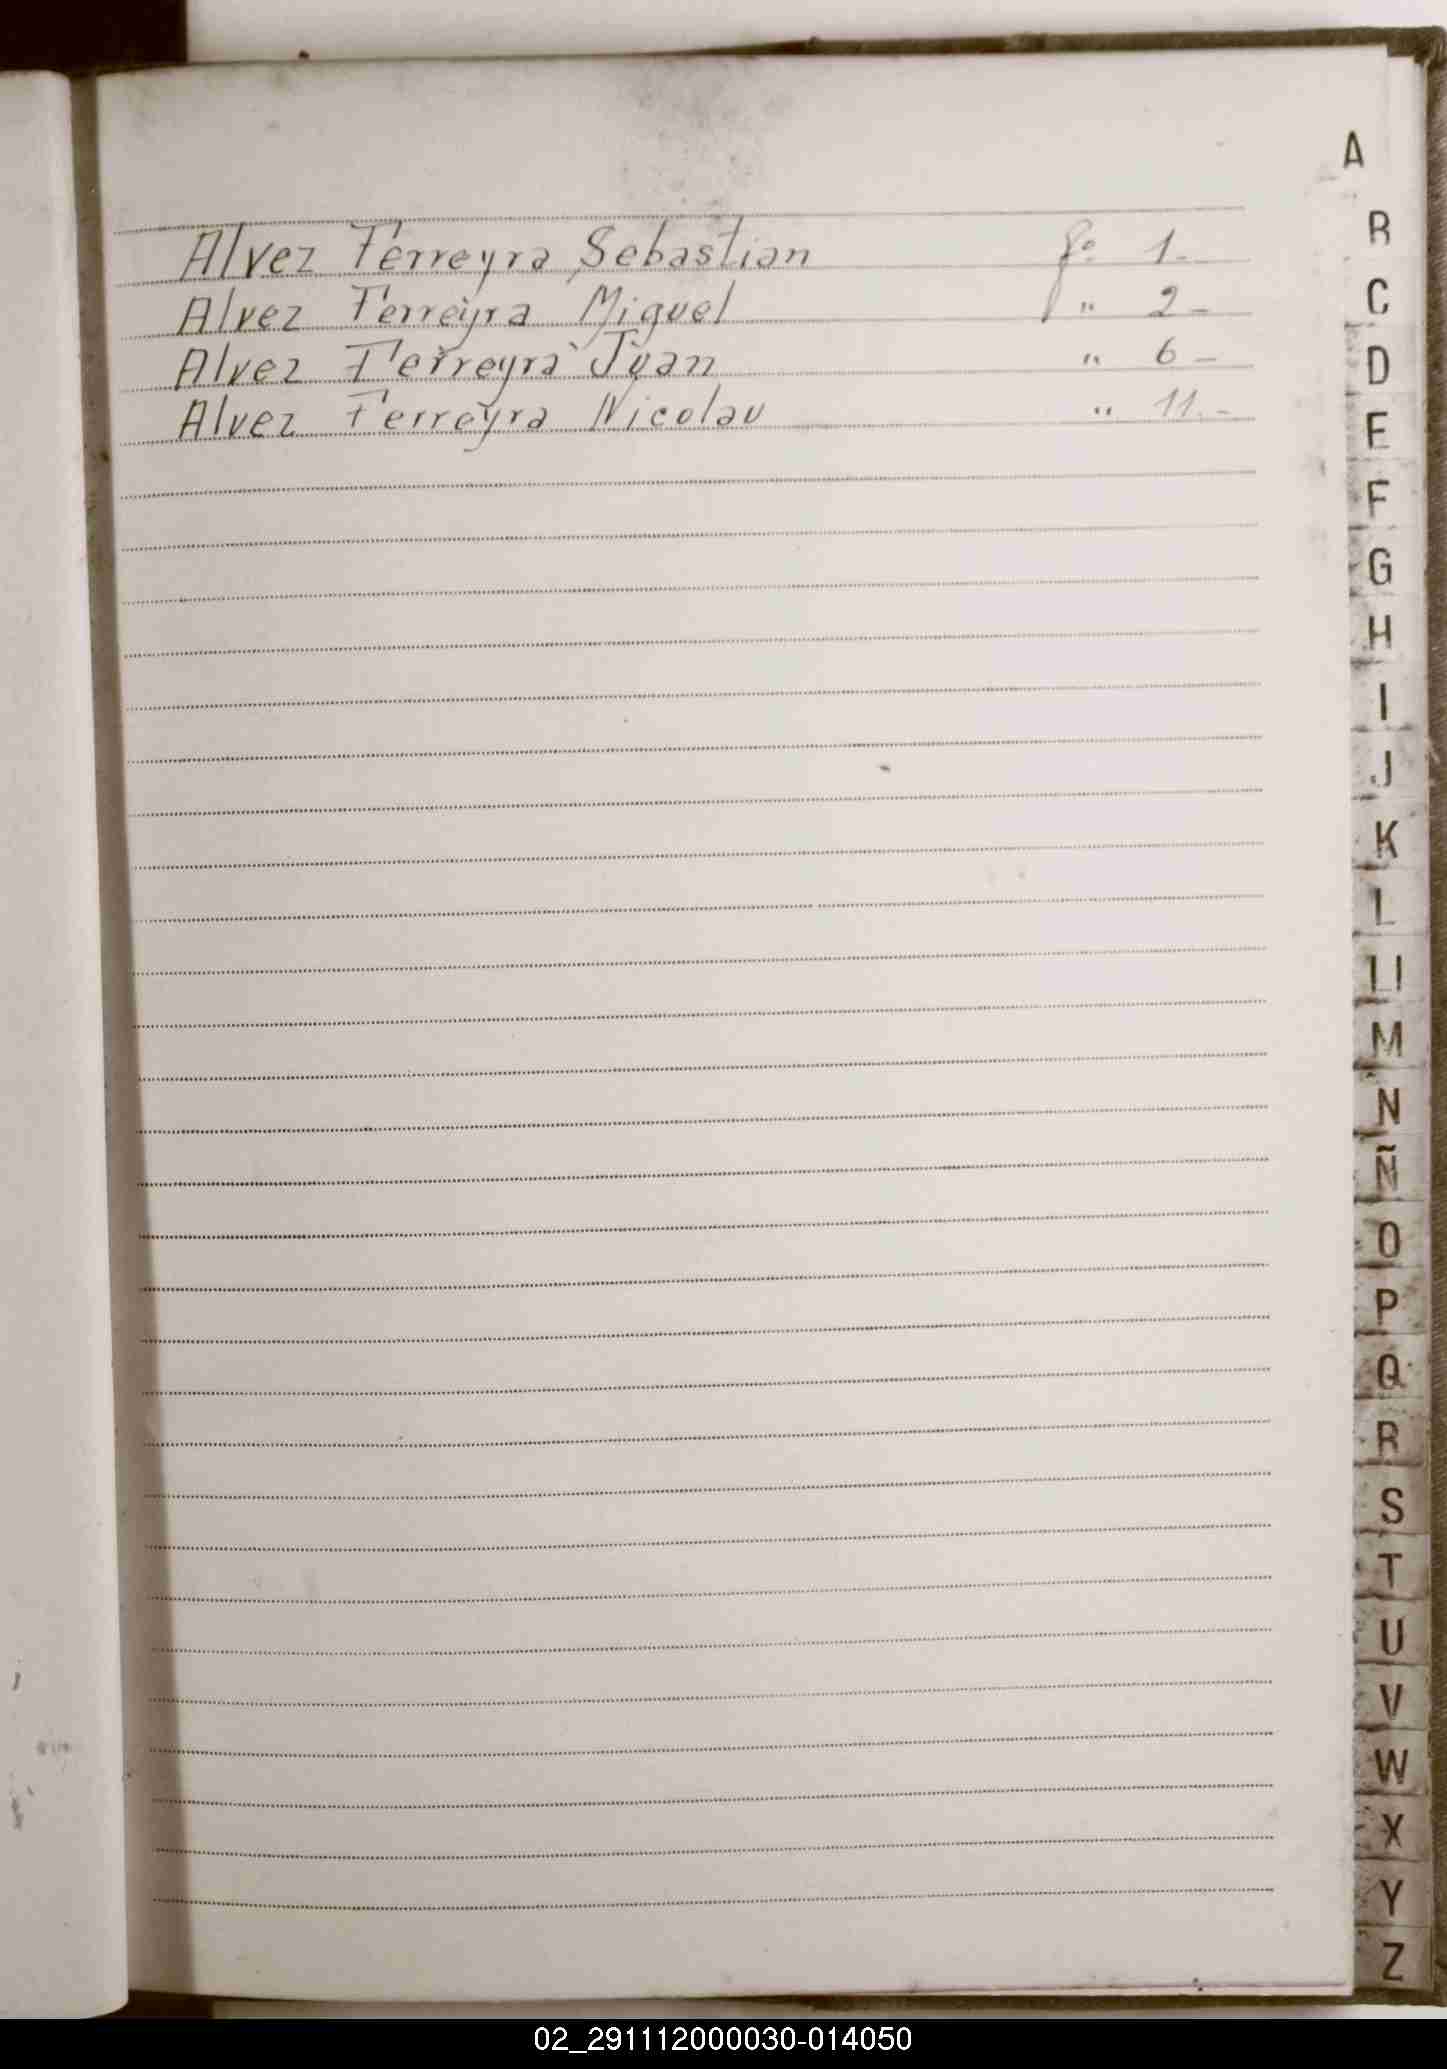 A
Alvez Ferreyra Sebastian fº 1.-
Alvez Ferreyra Miguel " 2 -
Alvez Ferreyra Juan " 6 -
Alvez Ferreyra Nicolau " 11.-
B
C
D
E
F
G
H
I
J
K
L
Ll
M
N
Ñ
O
P
Q
R
S
T
U
V
W
X
Y
Z
02_291112000030-014050